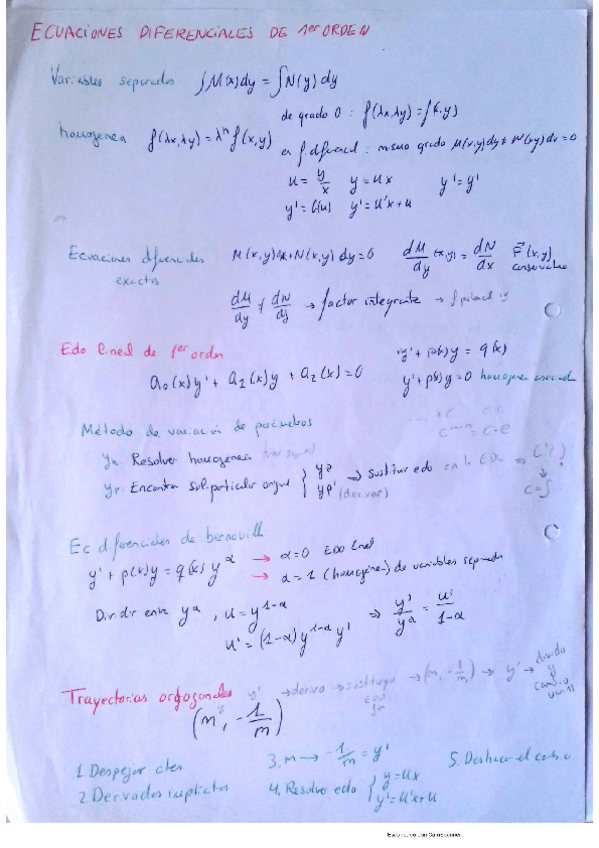 ECUACIONES DIFERENCIALES DE 1er ORDEN
Variables separadas ∫M(x)dy = ∫N(y)dy
de grado 0 : f(λx,λy) = f(x,y)
homogenea f(λx,λy) = λⁿ f(x,y)
en f diferencial : mismo grado M(x,y)dy + N(x,y)dx = 0
u = y/x y = ux y' = y'
y' = f(u) y' = u'x + u
Ecuaciones diferenciales M(x,y)dx + N(x,y)dy = 0 dM/dy (x,y) = dN/dx F(x,y)
exactas conservativo
dM/dy ≠ dN/dy → factor integrante →
Edo lineal de 1er orden y' + p(x)y = q(x)
a₀(x)y' + a₁(x)y + a₂(x) = 0 y' + p(x)y = 0 homogenea asociada
Método de variación de parámetros
yh: Resolver homogenea
yp: Encontrar sol. particular } yp yp' (derivar) → sustituir edo en la ED → C'( )
C = ∫
Ec diferenciales de bernouilli
y' + p(x)y = q(x) y^α → α = 0 EDO lineal
→ α = 1 (homogénea) de variables separadas
Dividir entre y^α , u = y^1-α ⇒ y'/y^α = u'/1-α
u' = (1-α) y^1-α y'
Trayectorias ortogonales y' → derivo → sustituyo → (m, -1/m) → y' → divido
y cambio
(m, -1/m)
1. Despejar ctes 3. m → -1/m = y' 5. Deshacer el cambio
2. Derivadas implícitas 4. Resolver edo { y = ux
y' = u'x + u